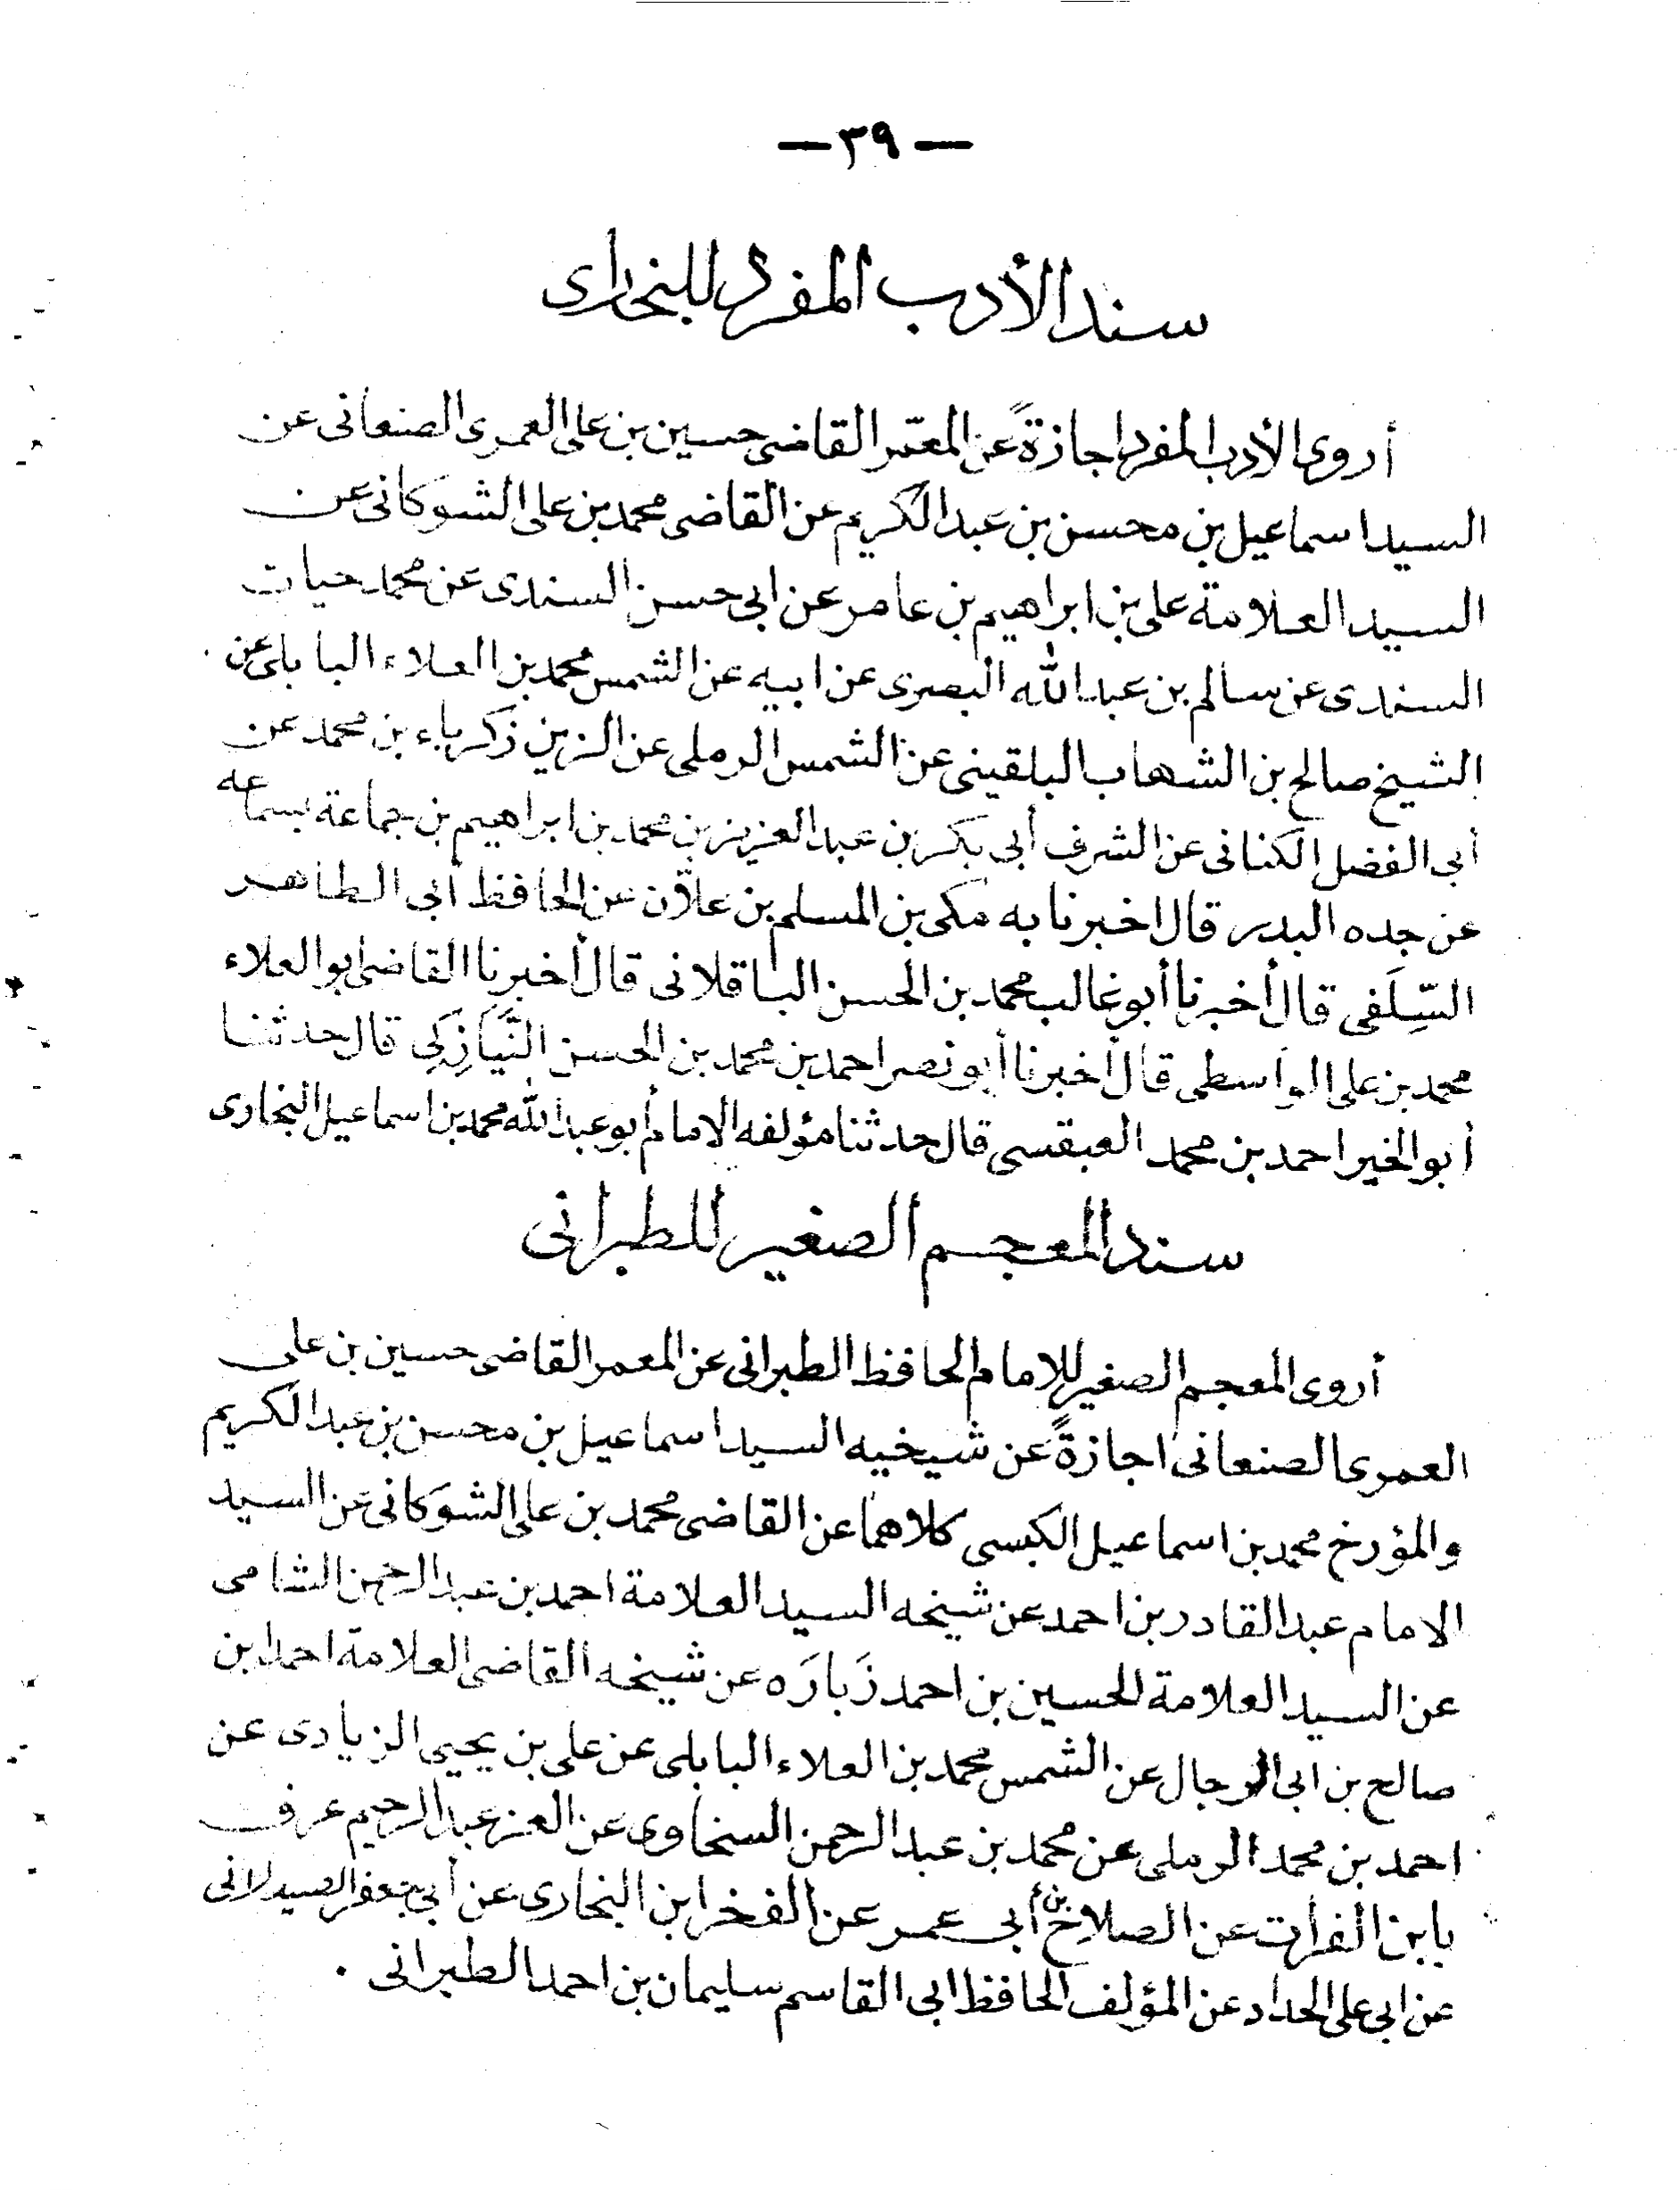 — ٣٩ —
سند الأدب المفرد للبخارى
أروى الأدب المفرد اجازةً عن المعمّر القاضى حسين بن على العمرى الصنعانى عن
السيد اسماعيل بن محسن بن عبد الكريم عن القاضى محمد بن على الشوكانى عن
السيد العلامة على بن ابراهيم بن عامر عن ابى حسن السندى عن محمد حيات
السندى عن سالم بن عبد الله البصرى عن ابيه عن الشمس محمد بن العلاء البابلى عن
الشيخ صالح بن الشهاب البلقينى عن الشمس الرملى عن الزين زكرياء بن محمد عن
أبى الفضل الكنانى عن الشرف أبى بكر بن عبد العزيز بن محمد بن ابراهيم بن جماعة بسماعه
عن جده البدر قال اخبرنا به مكى بن المسلم بن علاّن عن الحافظ أبى الطاهر
السِّلَفى قال أخبرنا أبو غالب محمد بن الحسن الباقلانى قال أخبرنا القاضى ابو العلاء
محمد بن على الواسطى قال أخبرنا أبو نصر احمد بن محمد بن الحسن النَّيَازِكِى قال حدثنا
أبو الخير احمد بن محمد العبقسى قال حدثنا مؤلفه الامام أبو عبد الله محمد بن اسماعيل البخارى
سند المعجم الصغير للطبرانى
أروى المعجم الصغير للامام الحافظ الطبرانى عن المعمر القاضى حسين بن على
العمرى الصنعانى اجازةً عن شيخيه السيد اسماعيل بن محسن بن عبد الكريم
والمؤرخ محمد بن اسماعيل الكبسى كلاهما عن القاضى محمد بن على الشوكانى عن السيد
الامام عبد القادر بن احمد عن شيخه السيد العلامة احمد بن عبد الرحمن الشامى
عن السيد العلامة الحسين بن احمد زَبارَه عن شيخه القاضى العلامة احمد ابن
صالح بن ابى الرجال عن الشمس محمد بن العلاء البابلى عن على بن يحيى الزيادى عن
احمد بن محمد الرملى عن محمد بن عبد الرحمن السخاوى عن العز عبد الرحيم عرف
بابن الفرات عن الصلاح بن أبى عمر عن الفخر ابن البخارى عن أبى جعفر الصيدلانى
عن ابى على الحداد عن المؤلف الحافظ ابى القاسم سليمان بن احمد الطبرانى .